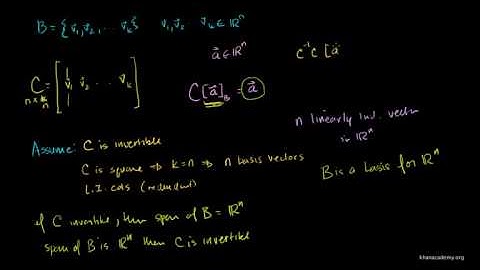 B = {v₁, v₂, ... v_k} v₁, v₂ v_k ∈ ℝⁿ
a ∈ ℝⁿ
C⁻¹ C [a
C = [v₁ v₂ ... v_k]
n x k
C[a]_B = a
n linearly ind. vector
in ℝⁿ
Assume: C is invertible
C is square → k=n → n basis vectors
L.I. cols (redundant)
B is a basis for ℝⁿ
if C invertible, then span of B = ℝⁿ
span of B is ℝⁿ then C is invertible
khanacademy.org